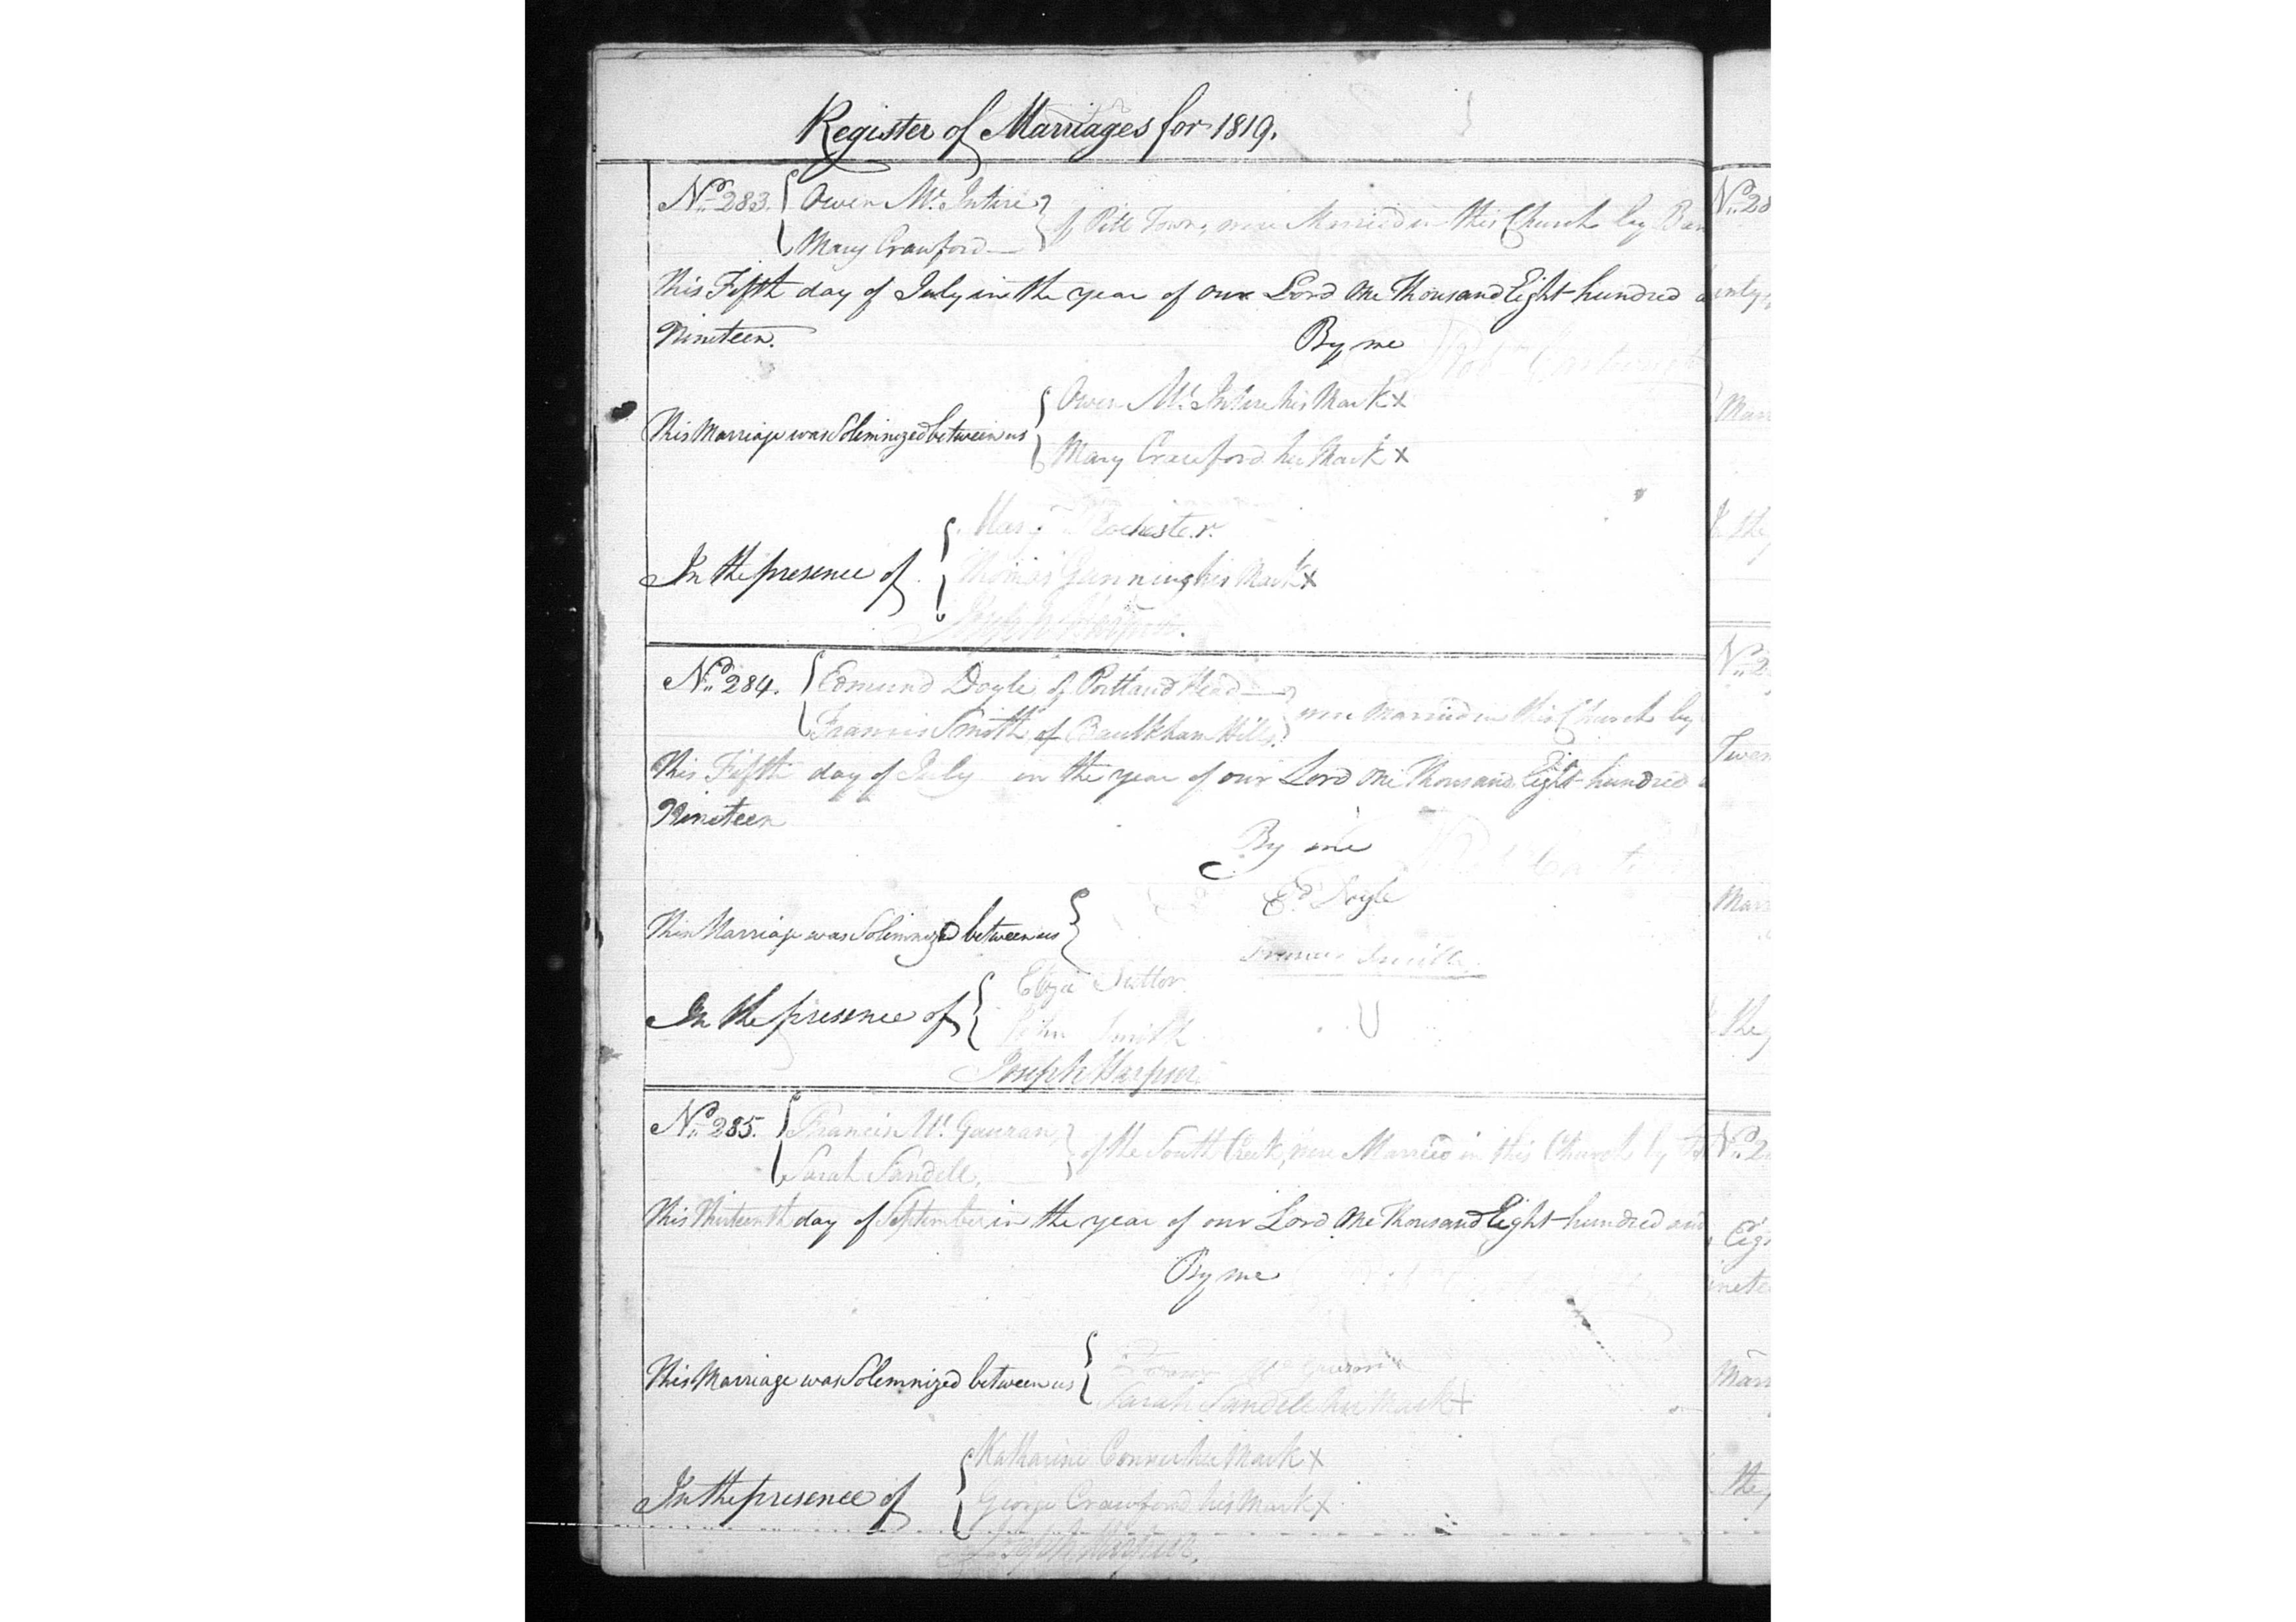 Register of Marriages for 1819.
No. 283. Owen Mc. Intire
Mary Crawford
of Pitt Town, were Married in this Church by Ban
This Fifth day of July in the year of our Lord One Thousand Eight hundred
Nineteen.
By me
This Marriage was Solemnized between us
Owen Mc. Intire his Mark x
Mary Crawford her Mark x
In the presence of
Mary Rochester
Thomas Gunning his Mark x
Joseph Harpur.
No. 284. Edmund Doyle of Portland Head
Francis Smith of Baulkham Hills.
were Married in this Church by
This Fifth day of July in the year of our Lord One Thousand Eight hundred
Nineteen
By me
This Marriage was Solemnized between us
Ed. Doyle
Frances Smith
In the presence of
Eliza Suttor
John Smith
Joseph Harpur
No. 285. Francis Mc. Gauran,
Sarah Sandell,
of the South Creek, were Married in this Church by
This Thirteenth day of September in the year of our Lord One Thousand Eight hundred and
By me
This Marriage was Solemnized between us
Mc Gauran
Sarah Sandell her Mark +
In the presence of
Katharine Conner her Mark x
George Crawford his Mark x
Joseph Harpur.